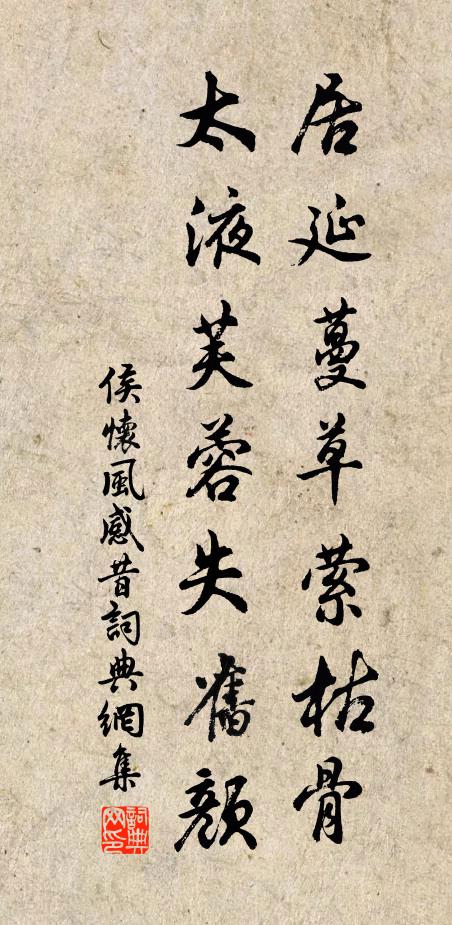 居延蔓草縈枯骨
太液芙蓉失舊顏
侯懷風感昔詞典網集
詞典網印